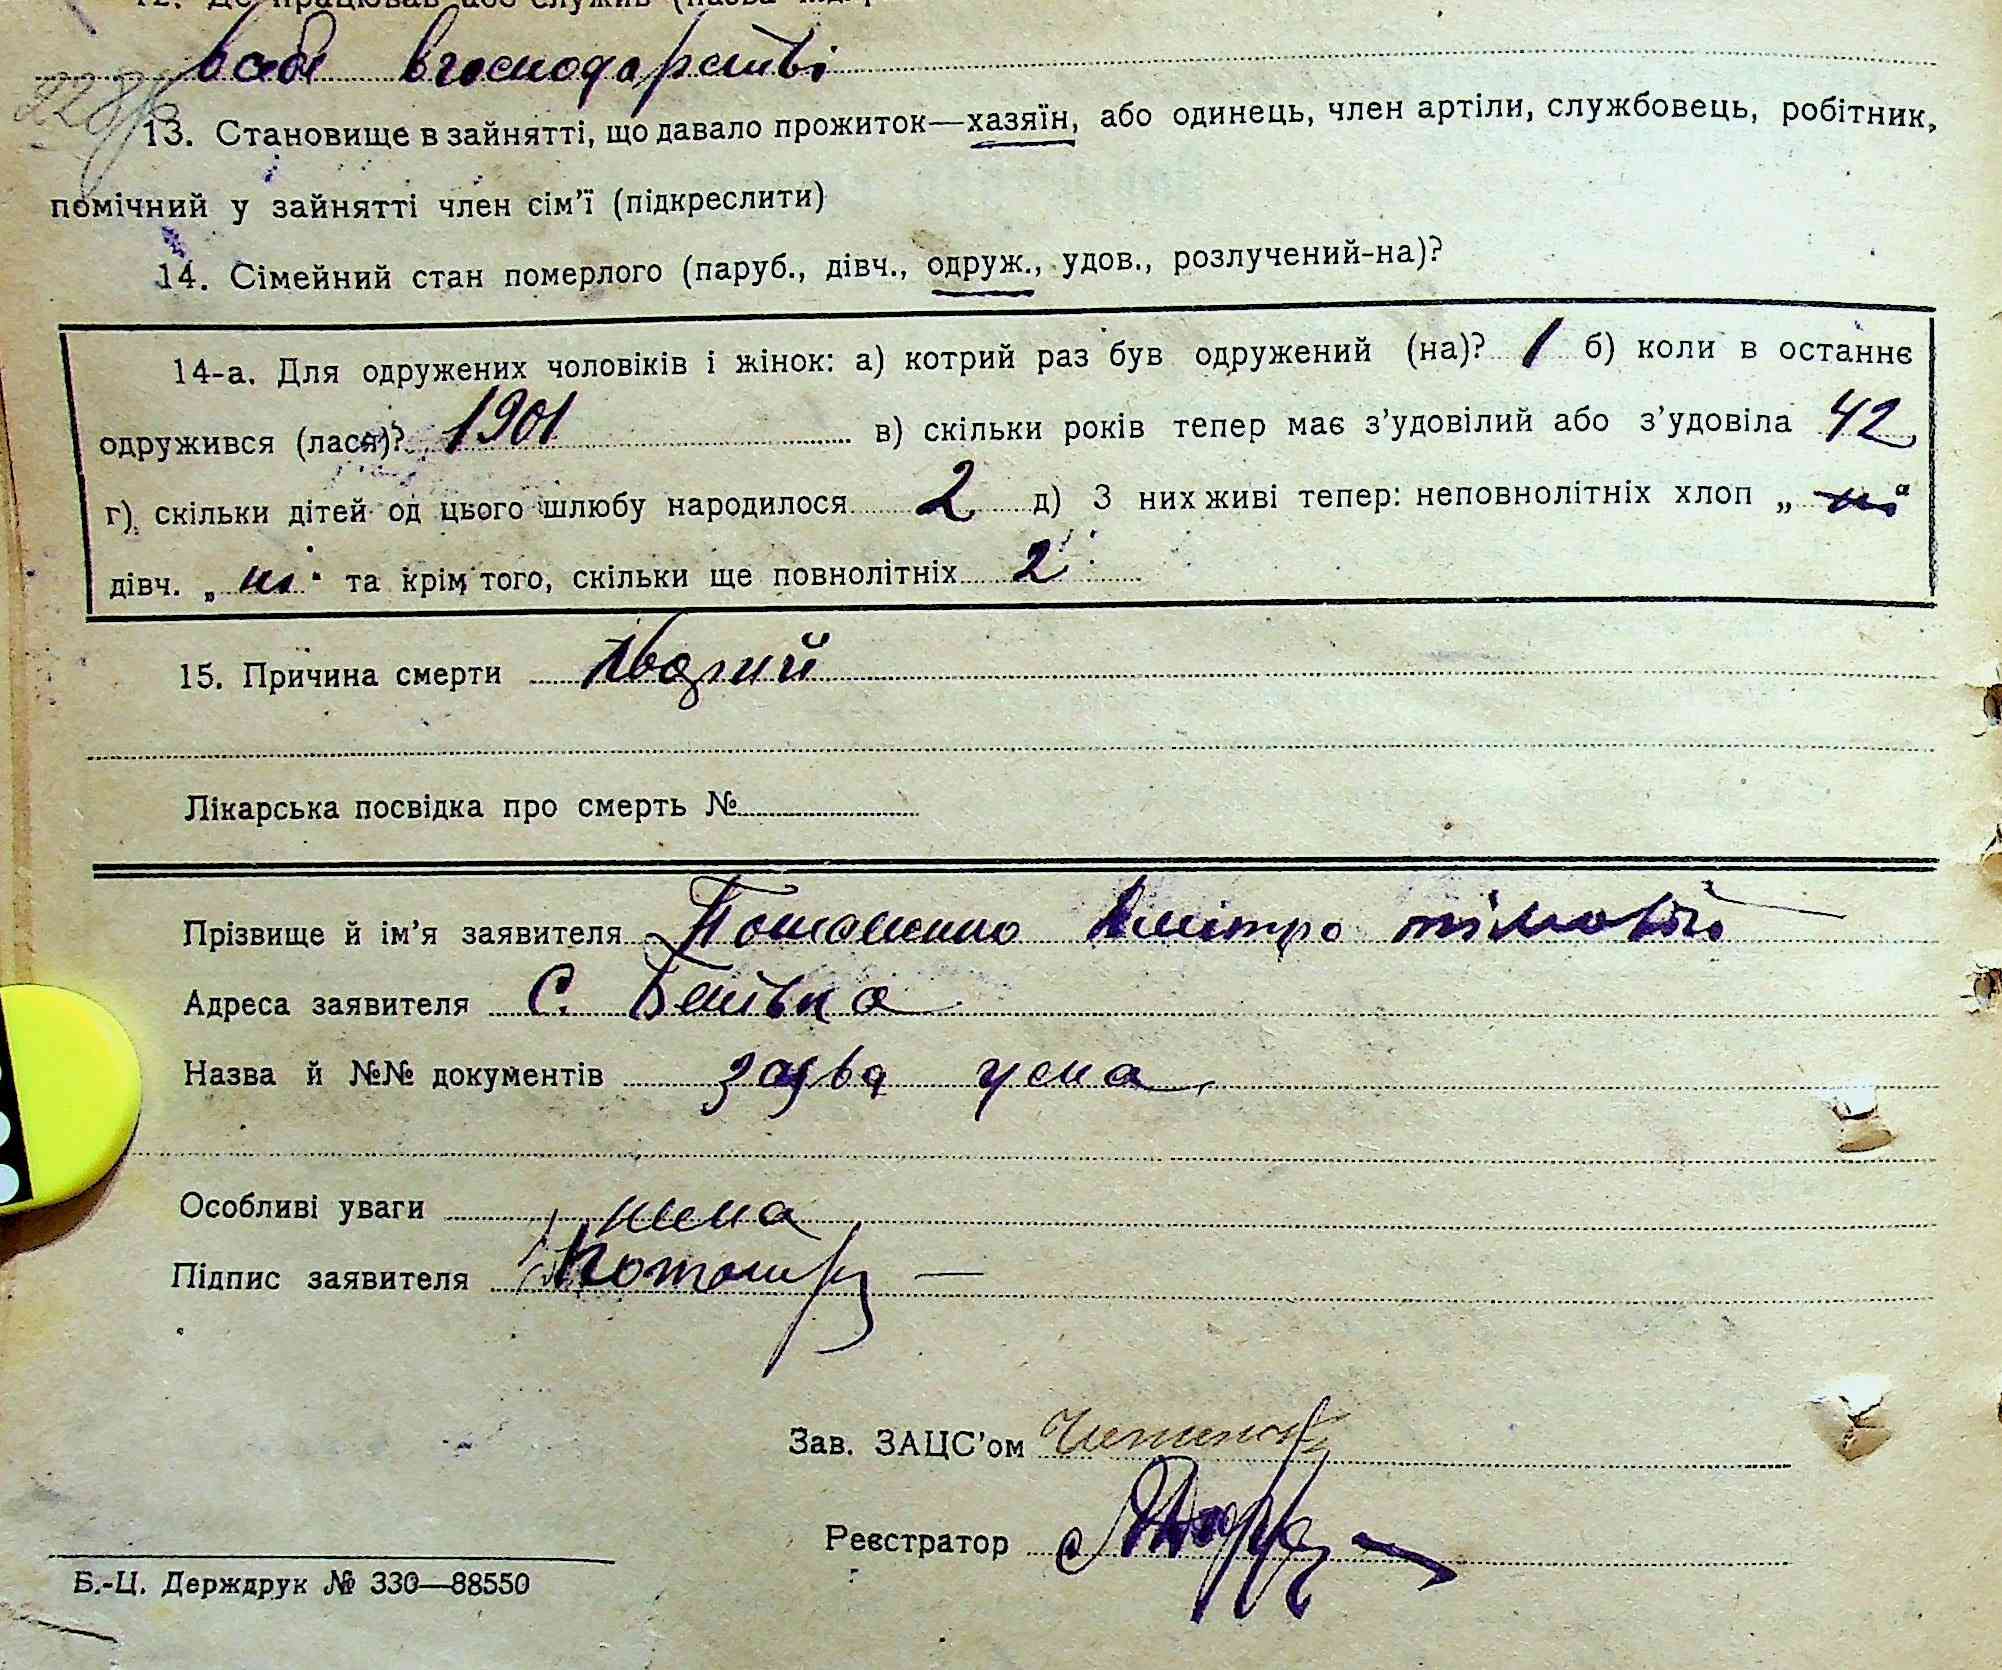 12. Де працював або служив (назва
в себе в господарстві
13. Становище в зайнятті, що давало прожиток—хазяїн, або одинець, член артіли, службовець, робітник,
помічний у зайнятті член сім'ї (підкреслити)
14. Сімейний стан померлого (паруб., дівч., одруж., удов., розлучений-на)?
14-а. Для одружених чоловіків і жінок: а) котрий раз був одружений (на)? 1 б) коли в останнє
одружився (лася)? 1901 в) скільки років тепер має з'удовілий або з'удовіла 42
г) скільки дітей од цього шлюбу народилося 2 д) З них живі тепер: неповнолітніх хлоп „ ні "
дівч. „ ні " та крім того, скільки ще повнолітніх 2
15. Причина смерти
Лікарська посвідка про смерть №
Прізвище й ім'я заявителя Дмітро
Адреса заявителя С.
Назва й №№ документів заява усна
Особливі уваги нема
Підпис заявителя
Зав. ЗАЦС'ом
Реєстратор
Б.-Ц. Держдрук № 330—88550